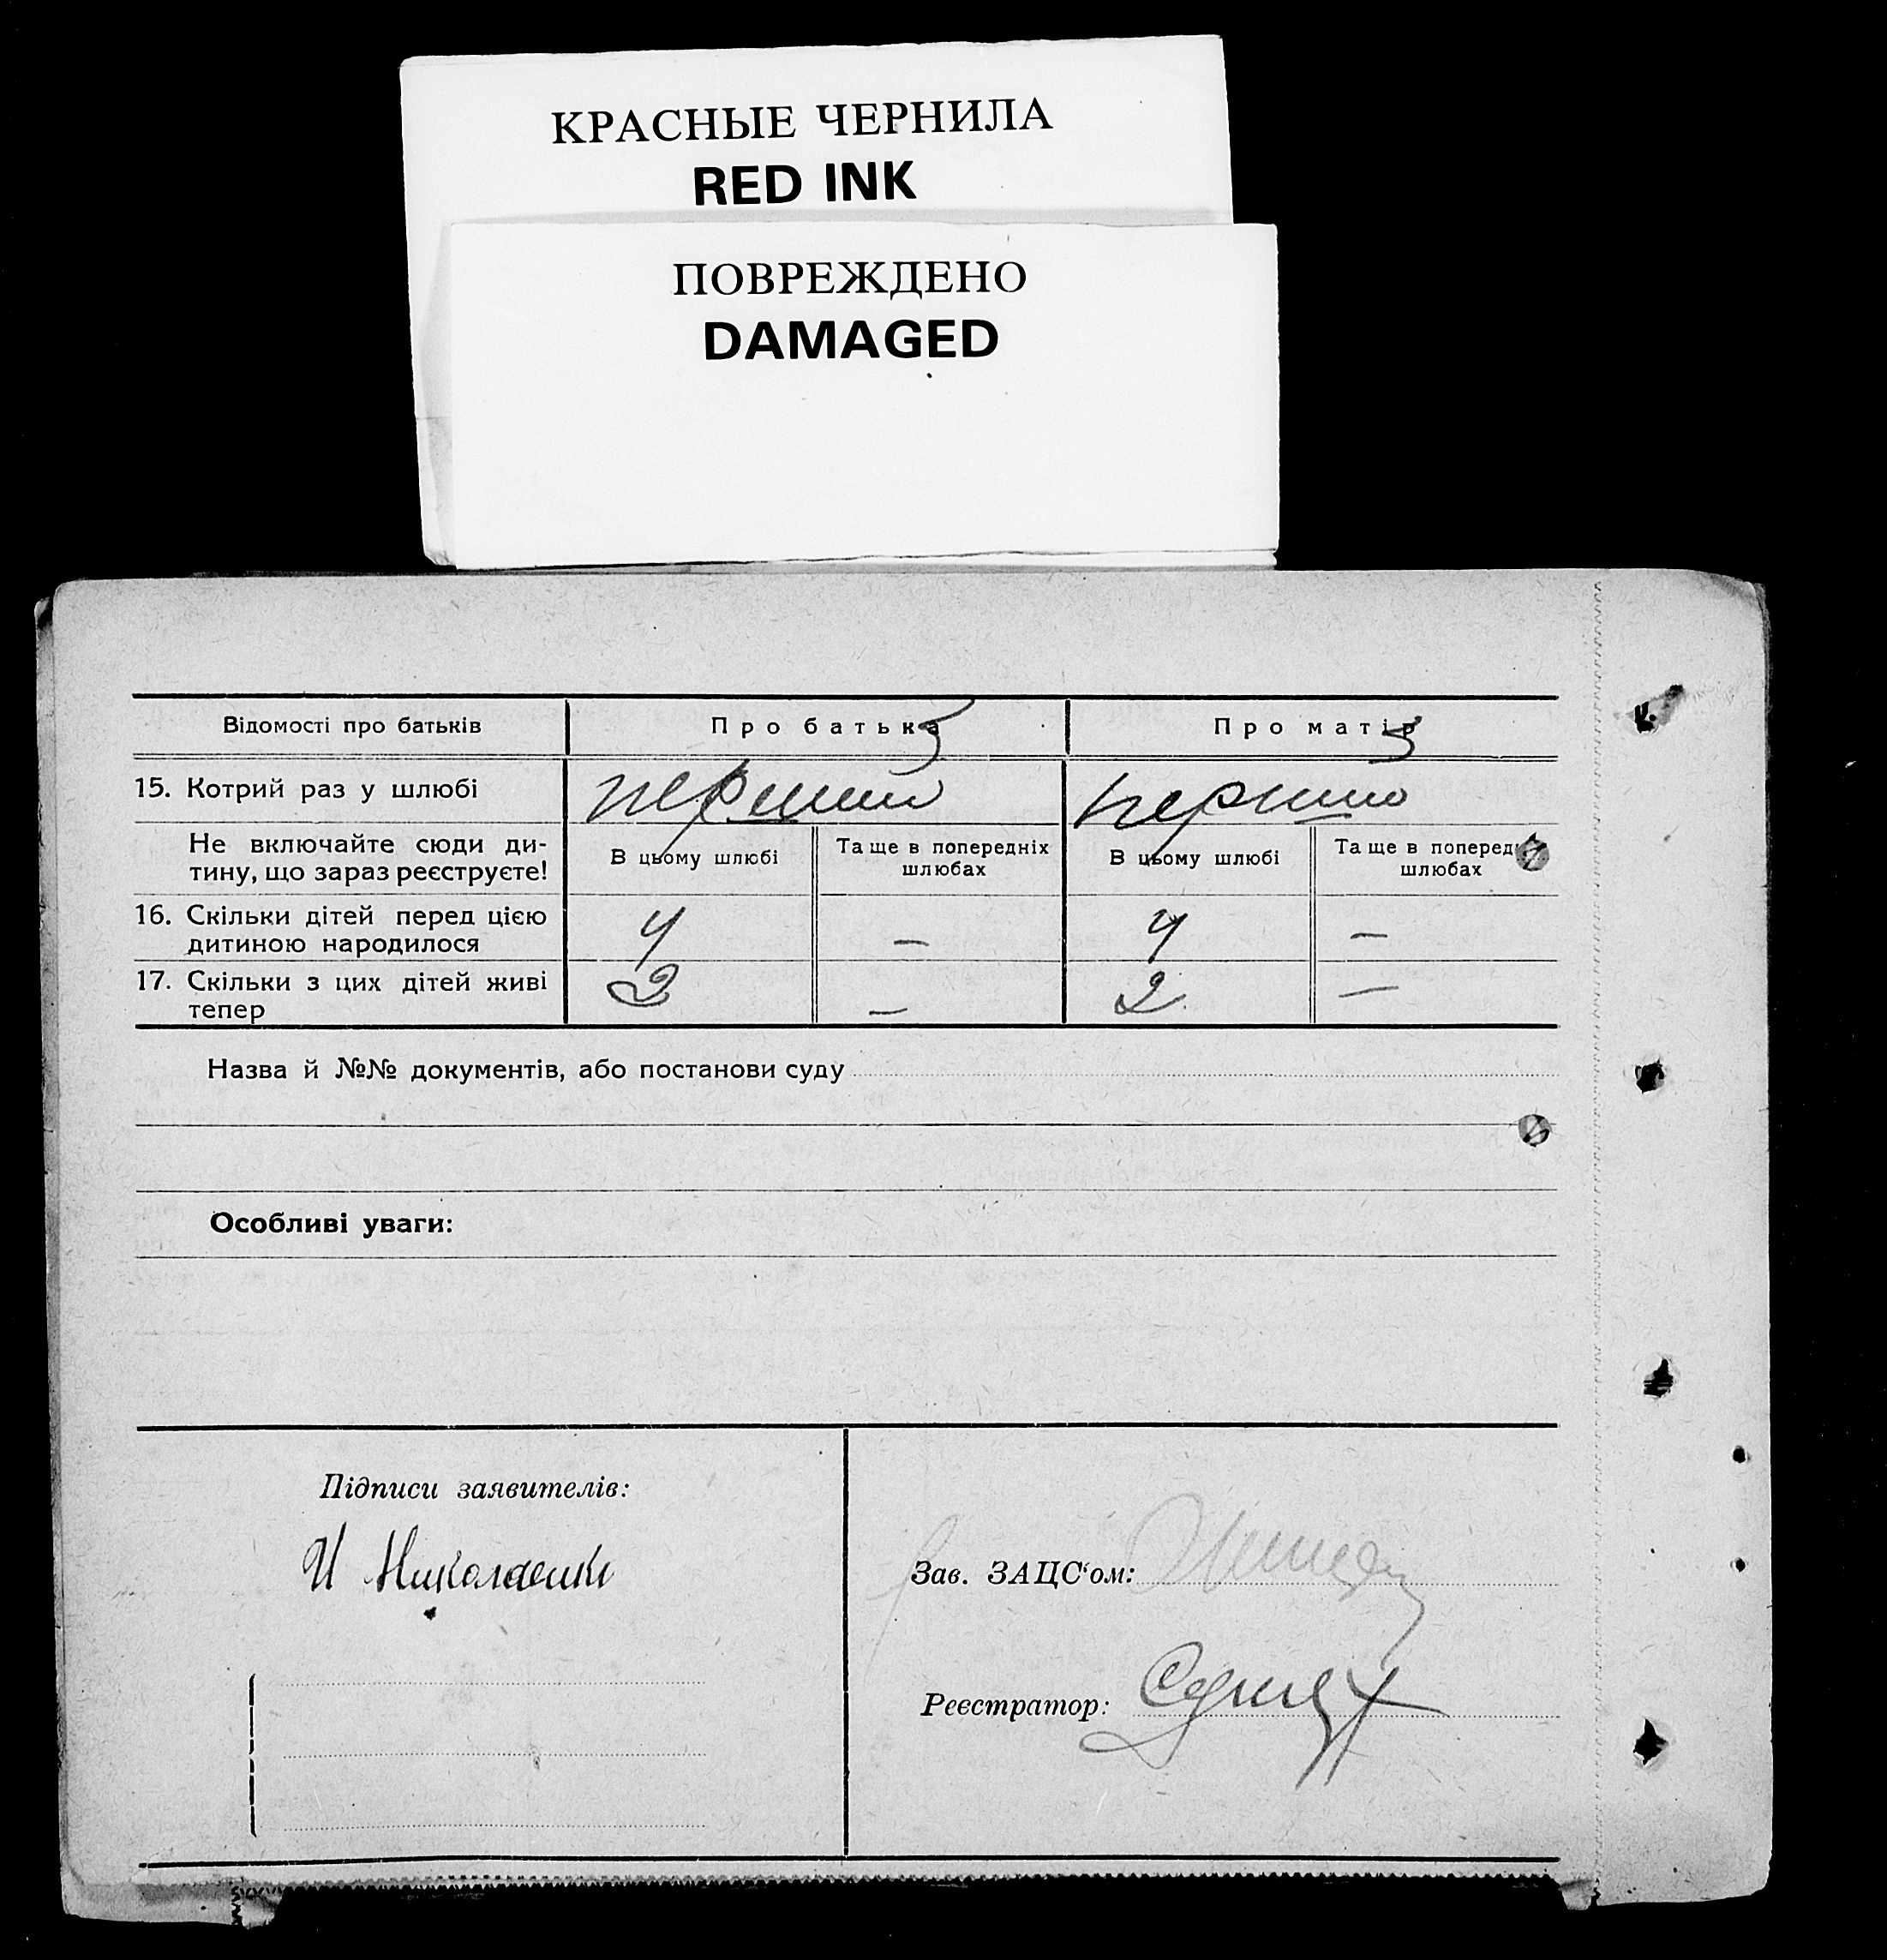 КРАСНЫЕ ЧЕРНИЛА
RED INK
ПОВРЕЖДЕНО
DAMAGED
Відомості про батьків Про батька Про матір
15. Котрий раз у шлюбі перший перший
Не включайте сюди ди-
тину, що зараз реєструєте!
В цьому шлюбі
Та ще в попередніх
шлюбах
В цьому шлюбі
Та ще в поперед
шлюбах
16. Скільки дітей перед цією
дитиною народилося
4 — 4 —
17. Скільки з цих дітей живі
тепер
2 — 2 —
Назва й №№ документів, або постанови суду
Особливі уваги:
Підписи заявителів:
И Николаенко
Зав. ЗАЦС'ом:
Реєстратор: